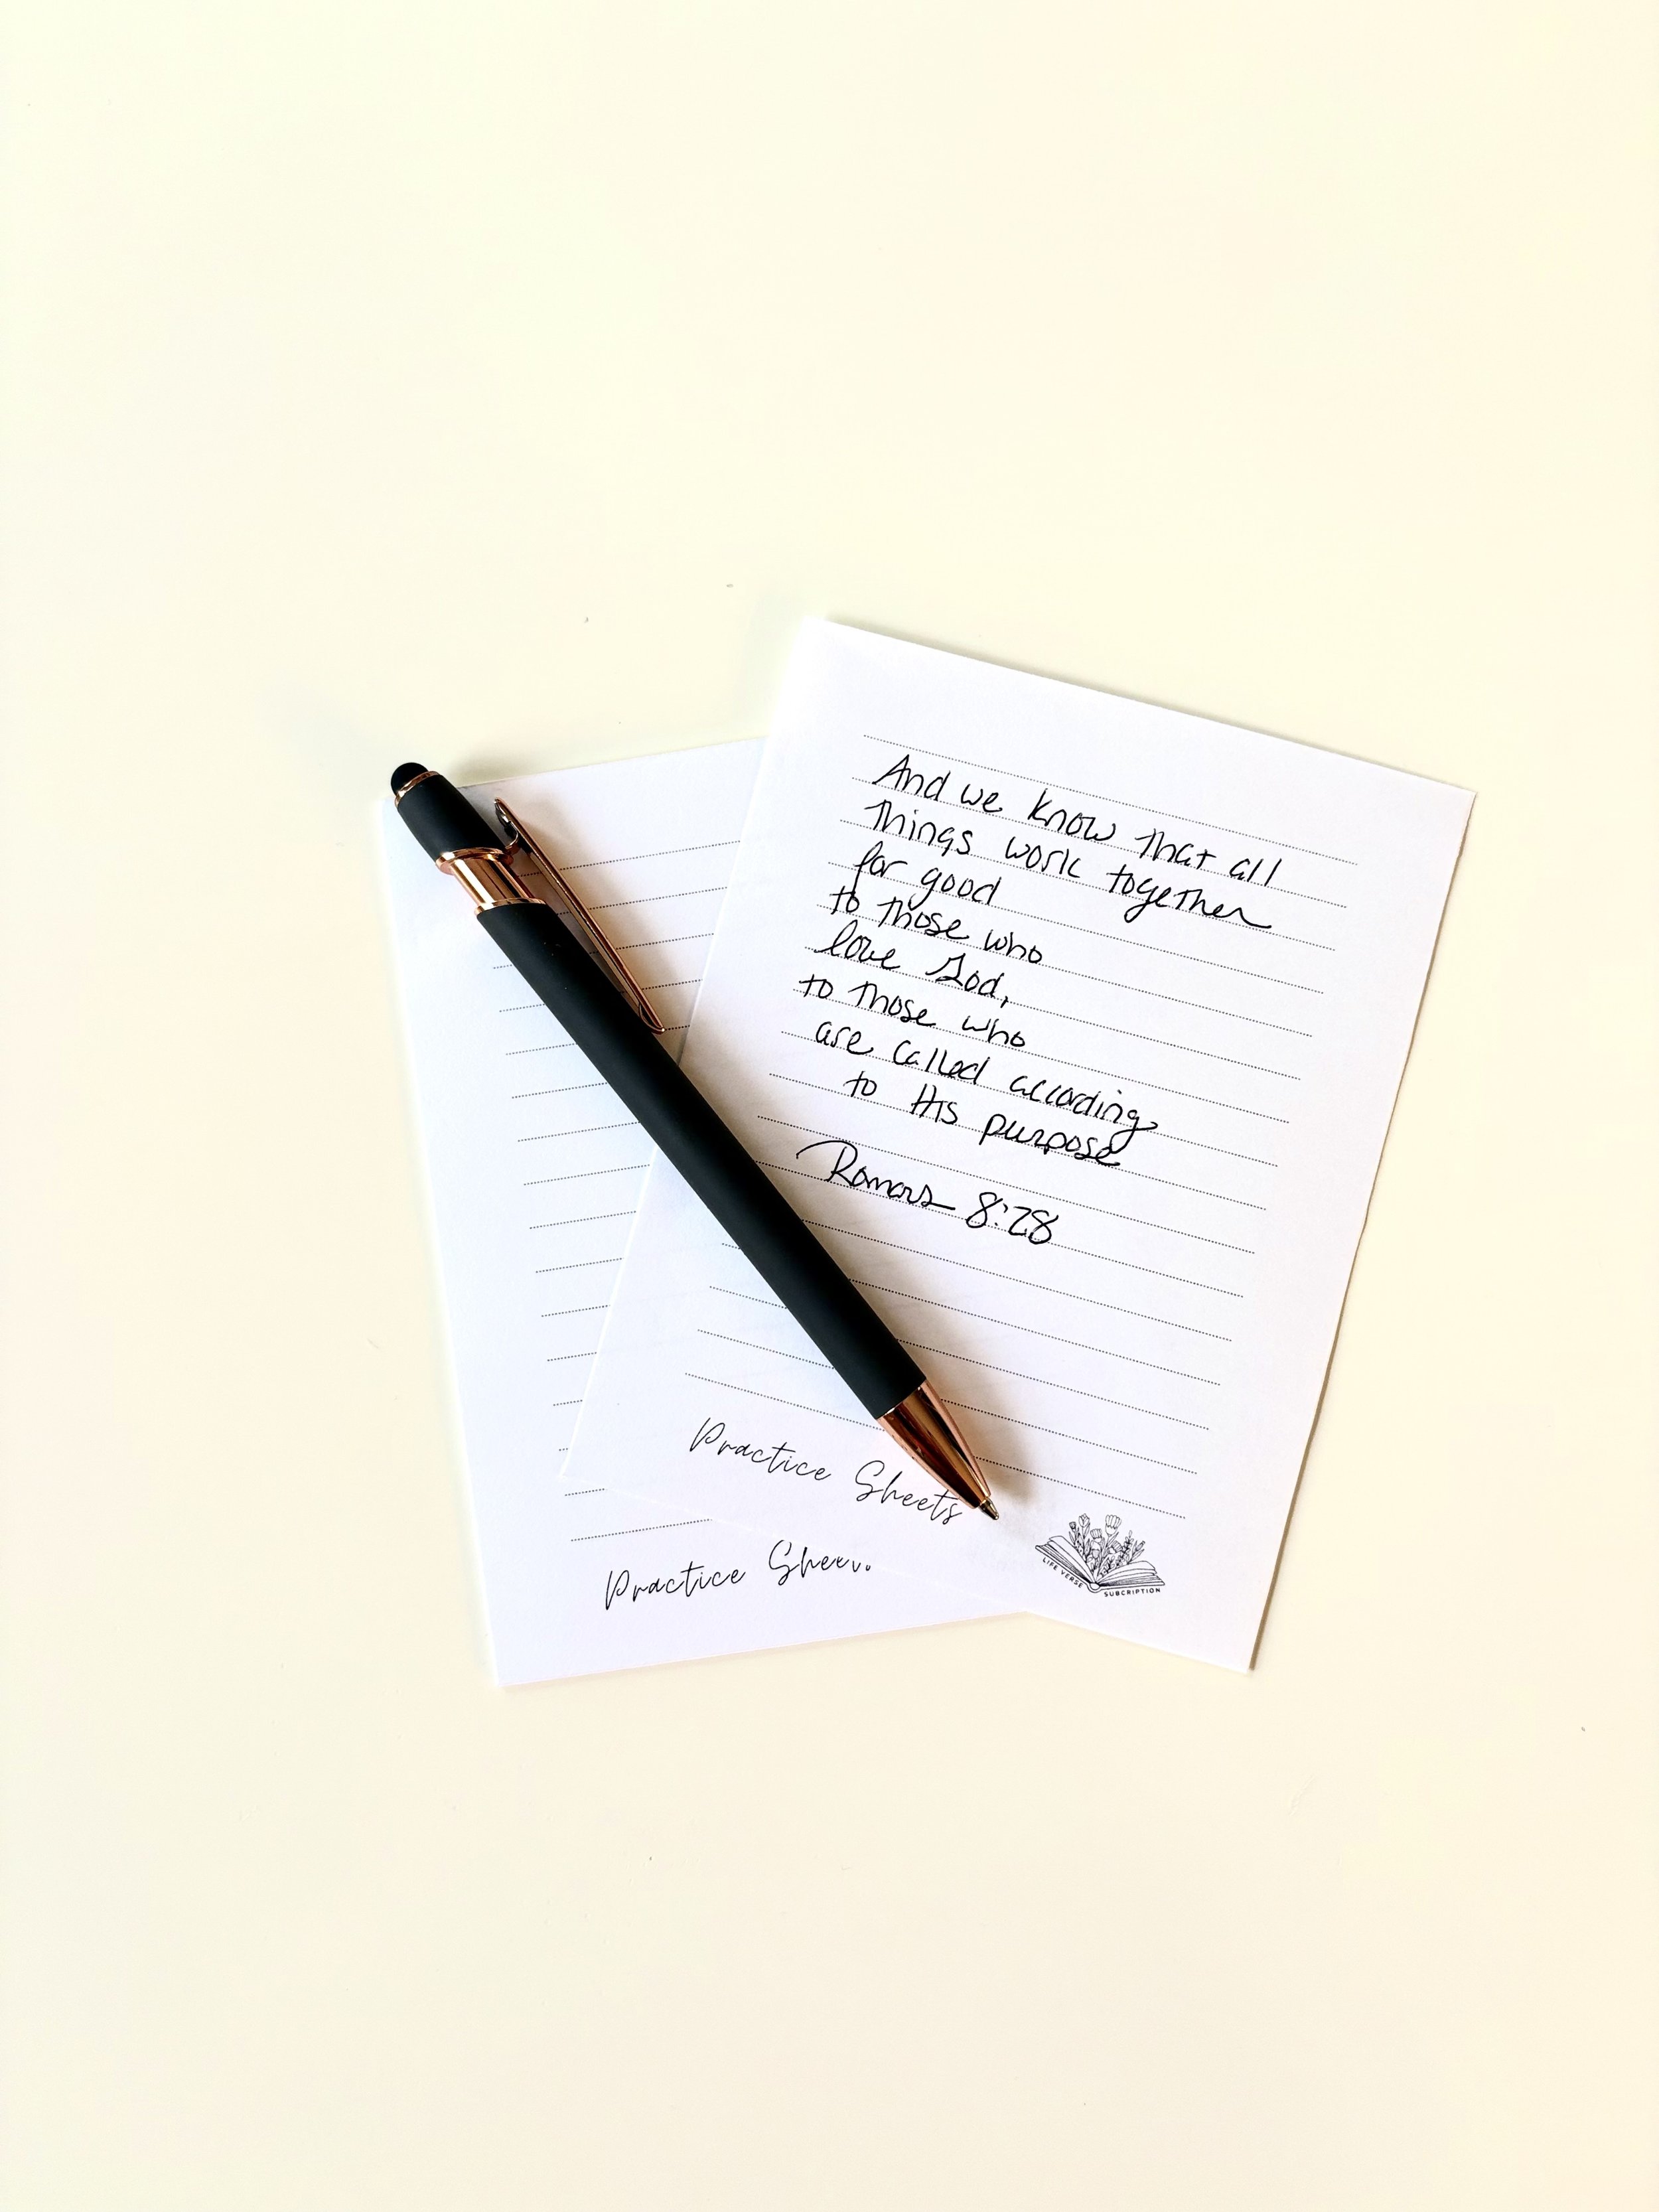 And we know that all
things work together
for good
to those who
love God,
to those who
are called according
to His purpose
Romans 8:28
Practice Sheets
LIFE VERSE SUBCRIPTION
Practice